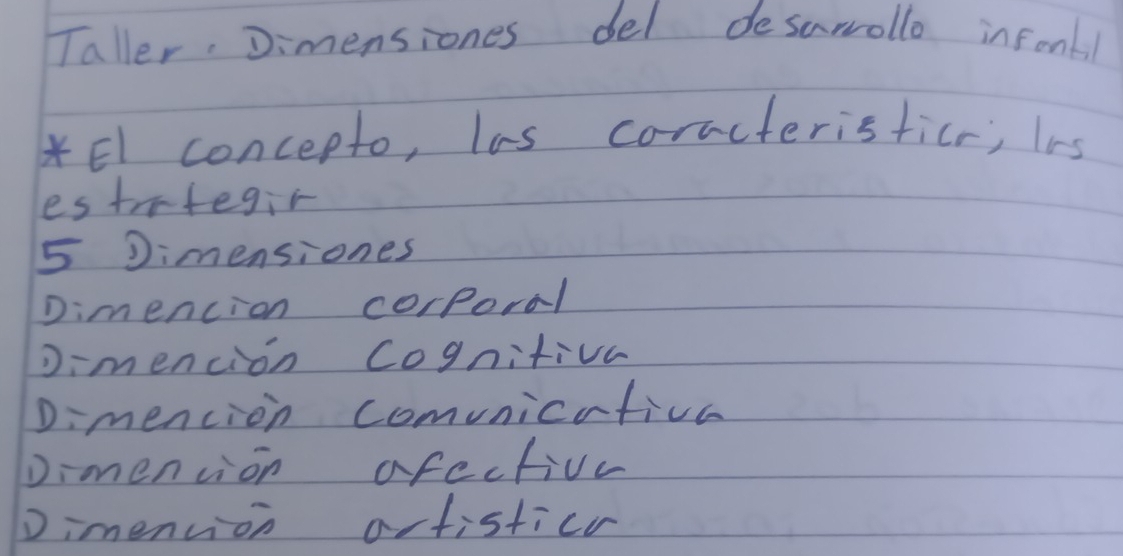 Taller. Dimensiones del desarrollo infantil
* El concepto, las caracteristica, las
estrategia
5 Dimensiones
Dimencion corporal
Dimención Cognitiva
Dimención comunicativa
Dimención afectiva
Dimención artistica